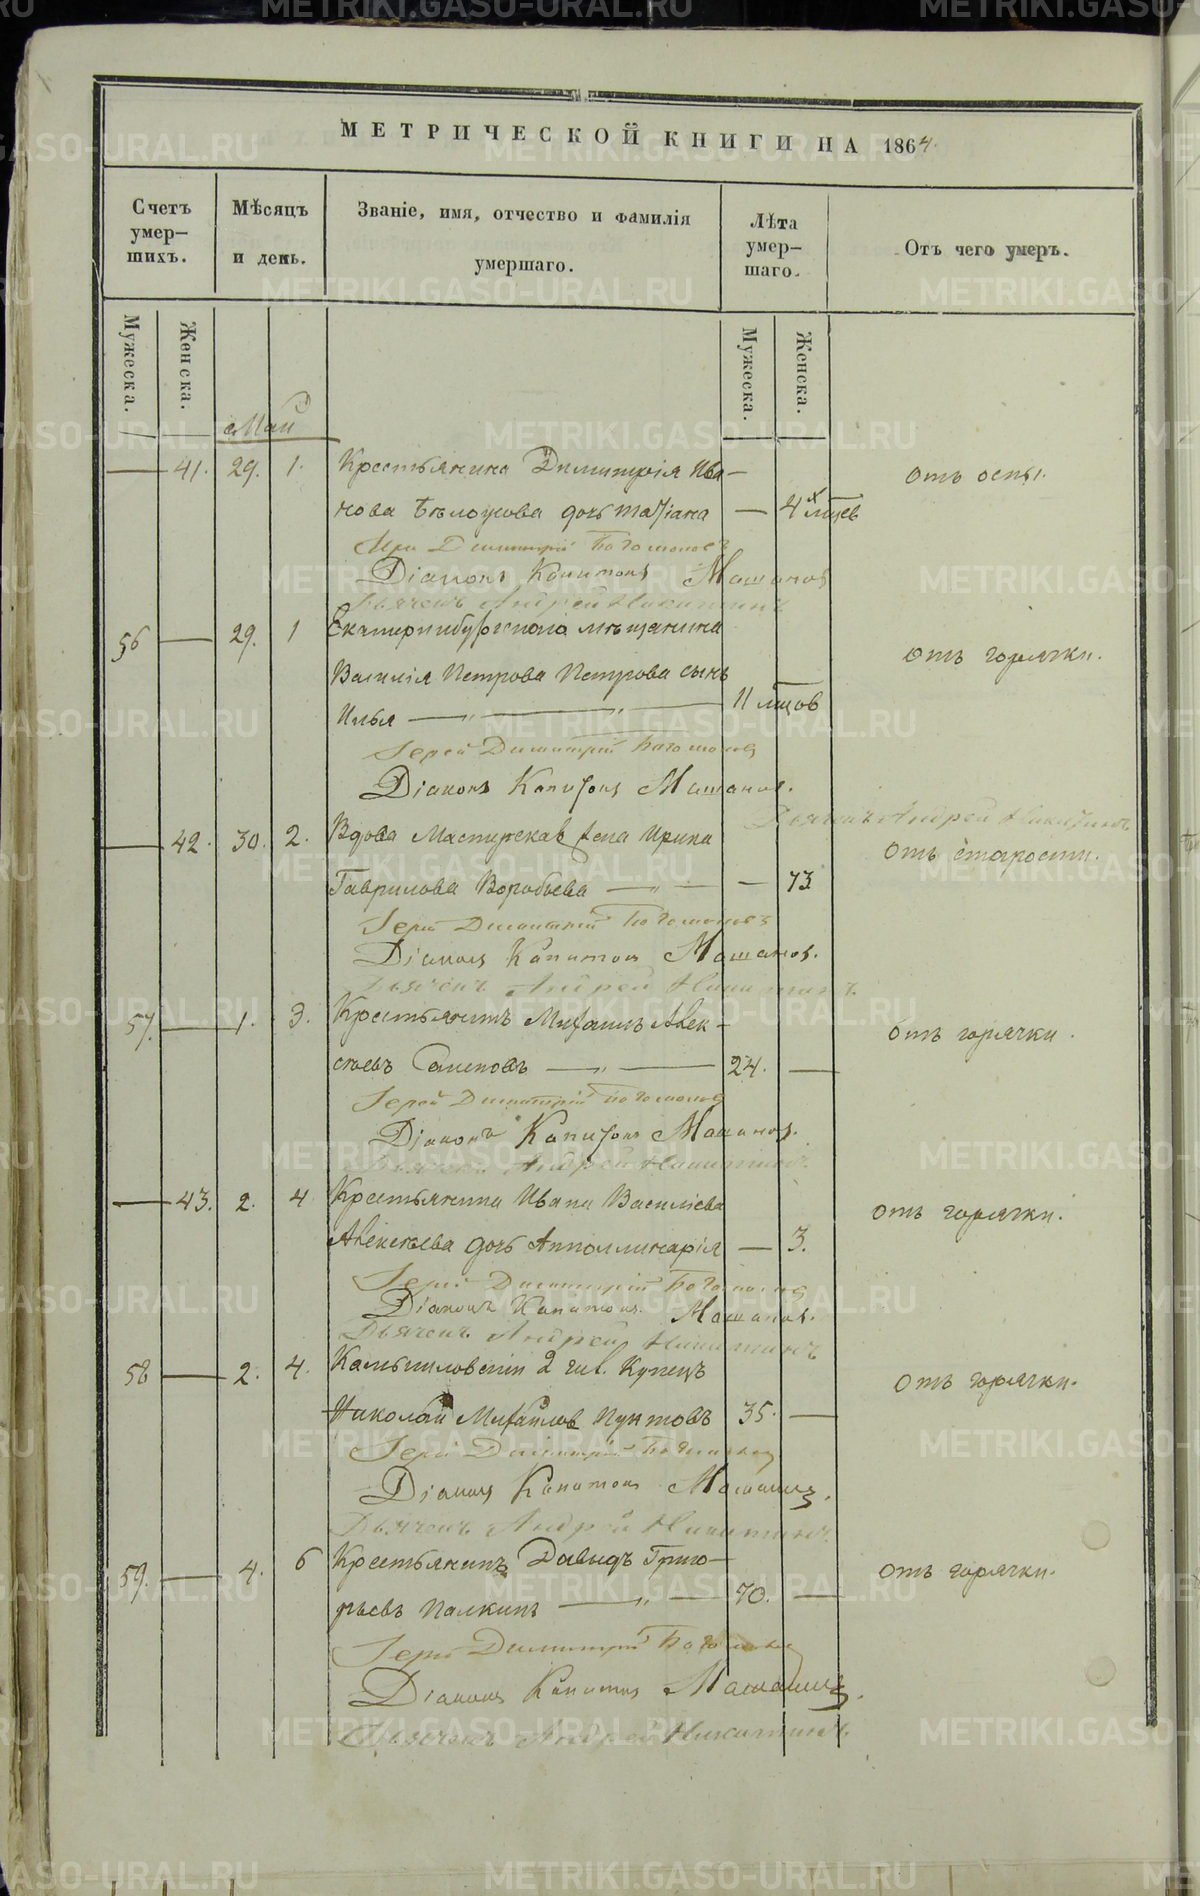 МЕТРИЧЕСКОЙ КНИГИ НА 1864.
Счетъ умер-шихъ.
Мѣсяцъ и день.
Званіе, имя, отчество и фамилія умершаго.
Лѣта умер-шаго.
Отъ чего умеръ.
Мужеска.
Женска.
Мужеска.
Женска.
Май
— 41. 29. 1. Крестьянина Димитрія Ива- отъ оспы.
нова Бѣлоусова дочь Татіана — 4х мцев
Димитрій Богомолов
Діаконъ Капитонъ Машанов
Дьячекъ Андрей Никитинъ
56 — 29. 1 Екатеринбургскаго мѣщанина отъ горячки.
Василія Петрова Петрова сынъ
Илья — „ — „ — 11 мцов
Іерей Димитрій Богомолов
Діаконъ Капитонъ Машанов.
Дьячекъ Андрей Никитинъ
— 42. 30. 2. Вдова Мастерская жена Ирина отъ старости.
Гаврилова Воробьева — „ — — 73
Іерей Димитрій Богомоловъ
Діаконъ Капитон Машанов.
Дьячекъ Андрей Никитинъ.
57. — 1. 3. Крестьянинъ Михаилъ Алек- отъ горячки.
сѣевъ Семеновъ — „ — 24. —
Іерей Димитрій Богомолов
Діаконъ Капитонъ Машанов.
Дьячекъ Андрей Никитинъ.
— 43. 2. 4 Крестьянина Ивана Василіева отъ горячки.
Алексѣева дочь Апполлинарія — 3.
Іерей Димитрій Богомолов
Діаконъ Капитонъ Машанов.
Дьячекъ Андрей Никитинъ
58 — 2. 4. Камышловскій 2 гил. Купецъ отъ горячки.
Николай Михайлов Пунтовъ 35. —
Іерей Димитрій Богомолов
Діаконъ Капитонъ Машановъ.
Дьячекъ Андрей Никитинъ
59. — 4. 6 Крестьянинъ Давыдъ Григо- отъ горячки.
рьевъ Палкинъ — „ — 70. —
Іерей Димитрій Богомолов
Діаконъ Капитонъ Машановъ.
Дьячекъ Андрей Никитинъ.
METRIKI.GASO-URAL.RU